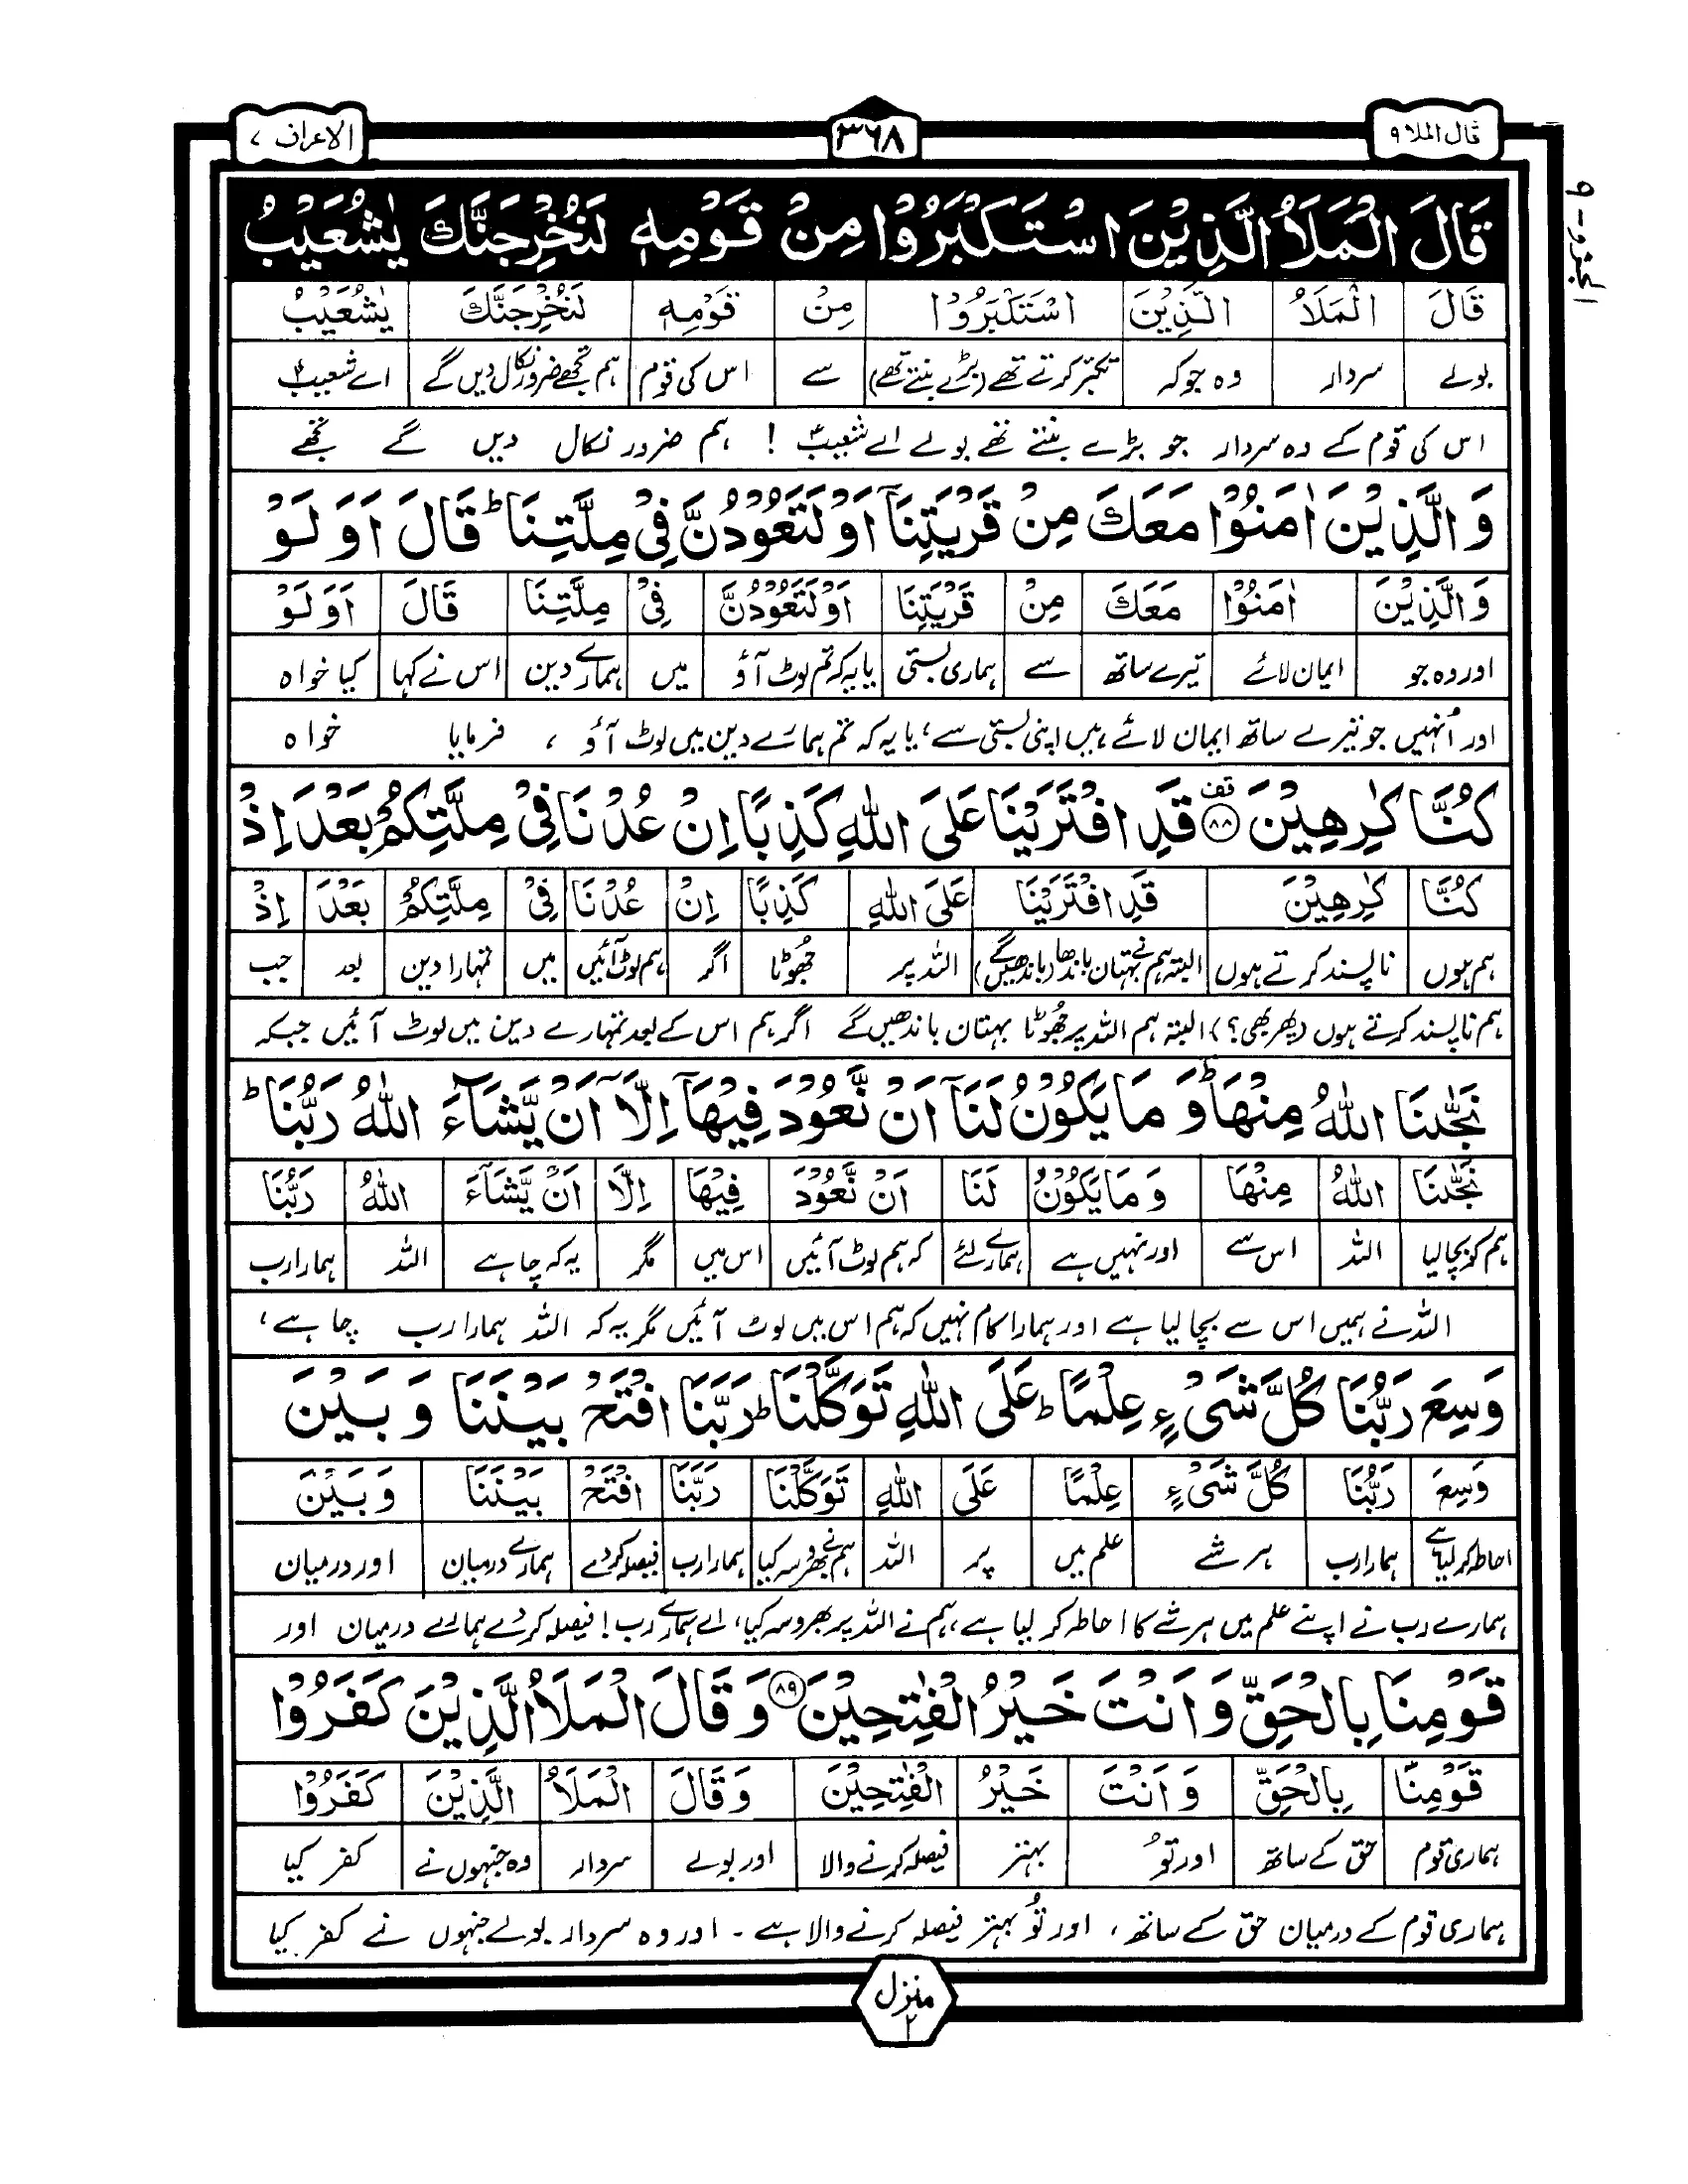 قال الملا ۹
۳۶۸
الاعراف ۷
الجزو - ۹
قَالَ الْمَلَاُ الَّذِيْنَ اسْتَكْبَرُوْا مِنْ قَوْمِهٖ لَنُخْرِجَنَّكَ يٰشُعَيْبُ
قَالَ الْمَلَاُ الَّذِيْنَ اسْتَكْبَرُوْا مِنْ قَوْمِهٖ لَنُخْرِجَنَّكَ يٰشُعَيْبُ
بولے سردار وہ جوکہ تکبّر کرتے تھے (بڑے بنتے تھے) سے اس کی قوم ہم تجھے ضرور نکال دیں گے اے شعیبؑ
اس کی قوم کے وہ سردار جو بڑے بنتے تھے بولے اے شعیبؑ ! ہم ضرور نکال دیں گے تجھے
وَالَّذِيْنَ اٰمَنُوْا مَعَكَ مِنْ قَرْيَتِنَآ اَوْ لَتَعُوْدُنَّ فِيْ مِلَّتِنَا ؕ قَالَ اَوَ لَوْ
وَالَّذِيْنَ اٰمَنُوْا مَعَكَ مِنْ قَرْيَتِنَا اَوْ لَتَعُوْدُنَّ فِيْ مِلَّتِنَا قَالَ اَوَ لَوْ
اور وہ جو ایمان لائے تیرے ساتھ سے ہماری بستی یا یہ کہ تم لوٹ آؤ میں ہمارے دین اس نے کہا کیا خواہ
اور اُنہیں جو تیرے ساتھ ایمان لائے ہیں اپنی بستی سے، یا یہ کہ تم ہمارے دین میں لوٹ آؤ ، فرمایا خواہ
كُنَّا كٰرِهِيْنَ ۸۸ قف قَدِ افْتَرَيْنَا عَلَى اللّٰهِ كَذِبًا اِنْ عُدْنَا فِيْ مِلَّتِكُمْ بَعْدَ اِذْ
كُنَّا كٰرِهِيْنَ قَدِ افْتَرَيْنَا عَلَى اللّٰهِ كَذِبًا اِنْ عُدْنَا فِيْ مِلَّتِكُمْ بَعْدَ اِذْ
ہم ہوں ناپسند کرتے ہوں البتہ ہم نے بہتان باندھا (باندھیں گے) اللہ پر جھُوٹا اگر ہم لوٹ آئیں میں تمہارا دین بعد جب
ہم ناپسند کرتے ہوں (پھر بھی؟) البتہ ہم اللہ پر جھُوٹا بہتان باندھیں گے اگر ہم اس کے بعد تمہارے دین میں لوٹ آئیں جبکہ
نَجّٰىنَا اللّٰهُ مِنْهَا ؕ وَ مَا يَكُوْنُ لَنَآ اَنْ نَّعُوْدَ فِيْهَآ اِلَّآ اَنْ يَّشَآءَ اللّٰهُ رَبُّنَا ؕ
نَجّٰىنَا اللّٰهُ مِنْهَا وَ مَا يَكُوْنُ لَنَا اَنْ نَّعُوْدَ فِيْهَا اِلَّا اَنْ يَّشَآءَ اللّٰهُ رَبُّنَا
ہم کو بچا لیا اللہ اس سے اور نہیں ہے ہمارے لئے کہ ہم لوٹ آئیں اس میں مگر یہ کہ چاہے اللہ ہمارا رب
اللہ نے ہمیں اس سے بچا لیا ہے اور ہمارا کام نہیں کہ ہم اس میں لوٹ آئیں مگر یہ کہ اللہ ہمارا رب چاہے ،
وَسِعَ رَبُّنَا كُلَّ شَيْءٍ عِلْمًا ؕ عَلَى اللّٰهِ تَوَكَّلْنَا ؕ رَبَّنَا افْتَحْ بَيْنَنَا وَ بَيْنَ
وَسِعَ رَبُّنَا كُلَّ شَيْءٍ عِلْمًا عَلَى اللّٰهِ تَوَكَّلْنَا رَبَّنَا افْتَحْ بَيْنَنَا وَ بَيْنَ
احاطہ کر لیا ہے ہمارا رب ہر شے علم میں پر اللہ ہم نے بھروسہ کیا ہمارا رب فیصلہ کر دے ہمارے درمیان اور درمیان
ہمارے رب نے اپنے علم میں ہر شے کا احاطہ کر لیا ہے، ہم نے اللہ پر بھروسہ کیا، اے ہمارے رب! فیصلہ کر دے ہمارے درمیان اور
قَوْمِنَا بِالْحَقِّ وَ اَنْتَ خَيْرُ الْفٰتِحِيْنَ ۸۹ وَ قَالَ الْمَلَاُ الَّذِيْنَ كَفَرُوْا
قَوْمِنَا بِالْحَقِّ وَ اَنْتَ خَيْرُ الْفٰتِحِيْنَ وَ قَالَ الْمَلَاُ الَّذِيْنَ كَفَرُوْا
ہماری قوم حق کے ساتھ اور تُو بہتر فیصلہ کرنے والا اور بولے سردار وہ جنہوں نے کفر کیا
ہماری قوم کے درمیان حق کے ساتھ، اور تُو بہتر فیصلہ کرنے والا ہے ۔ اور وہ سردار بولے جنہوں نے کفر کیا
منزل ۲